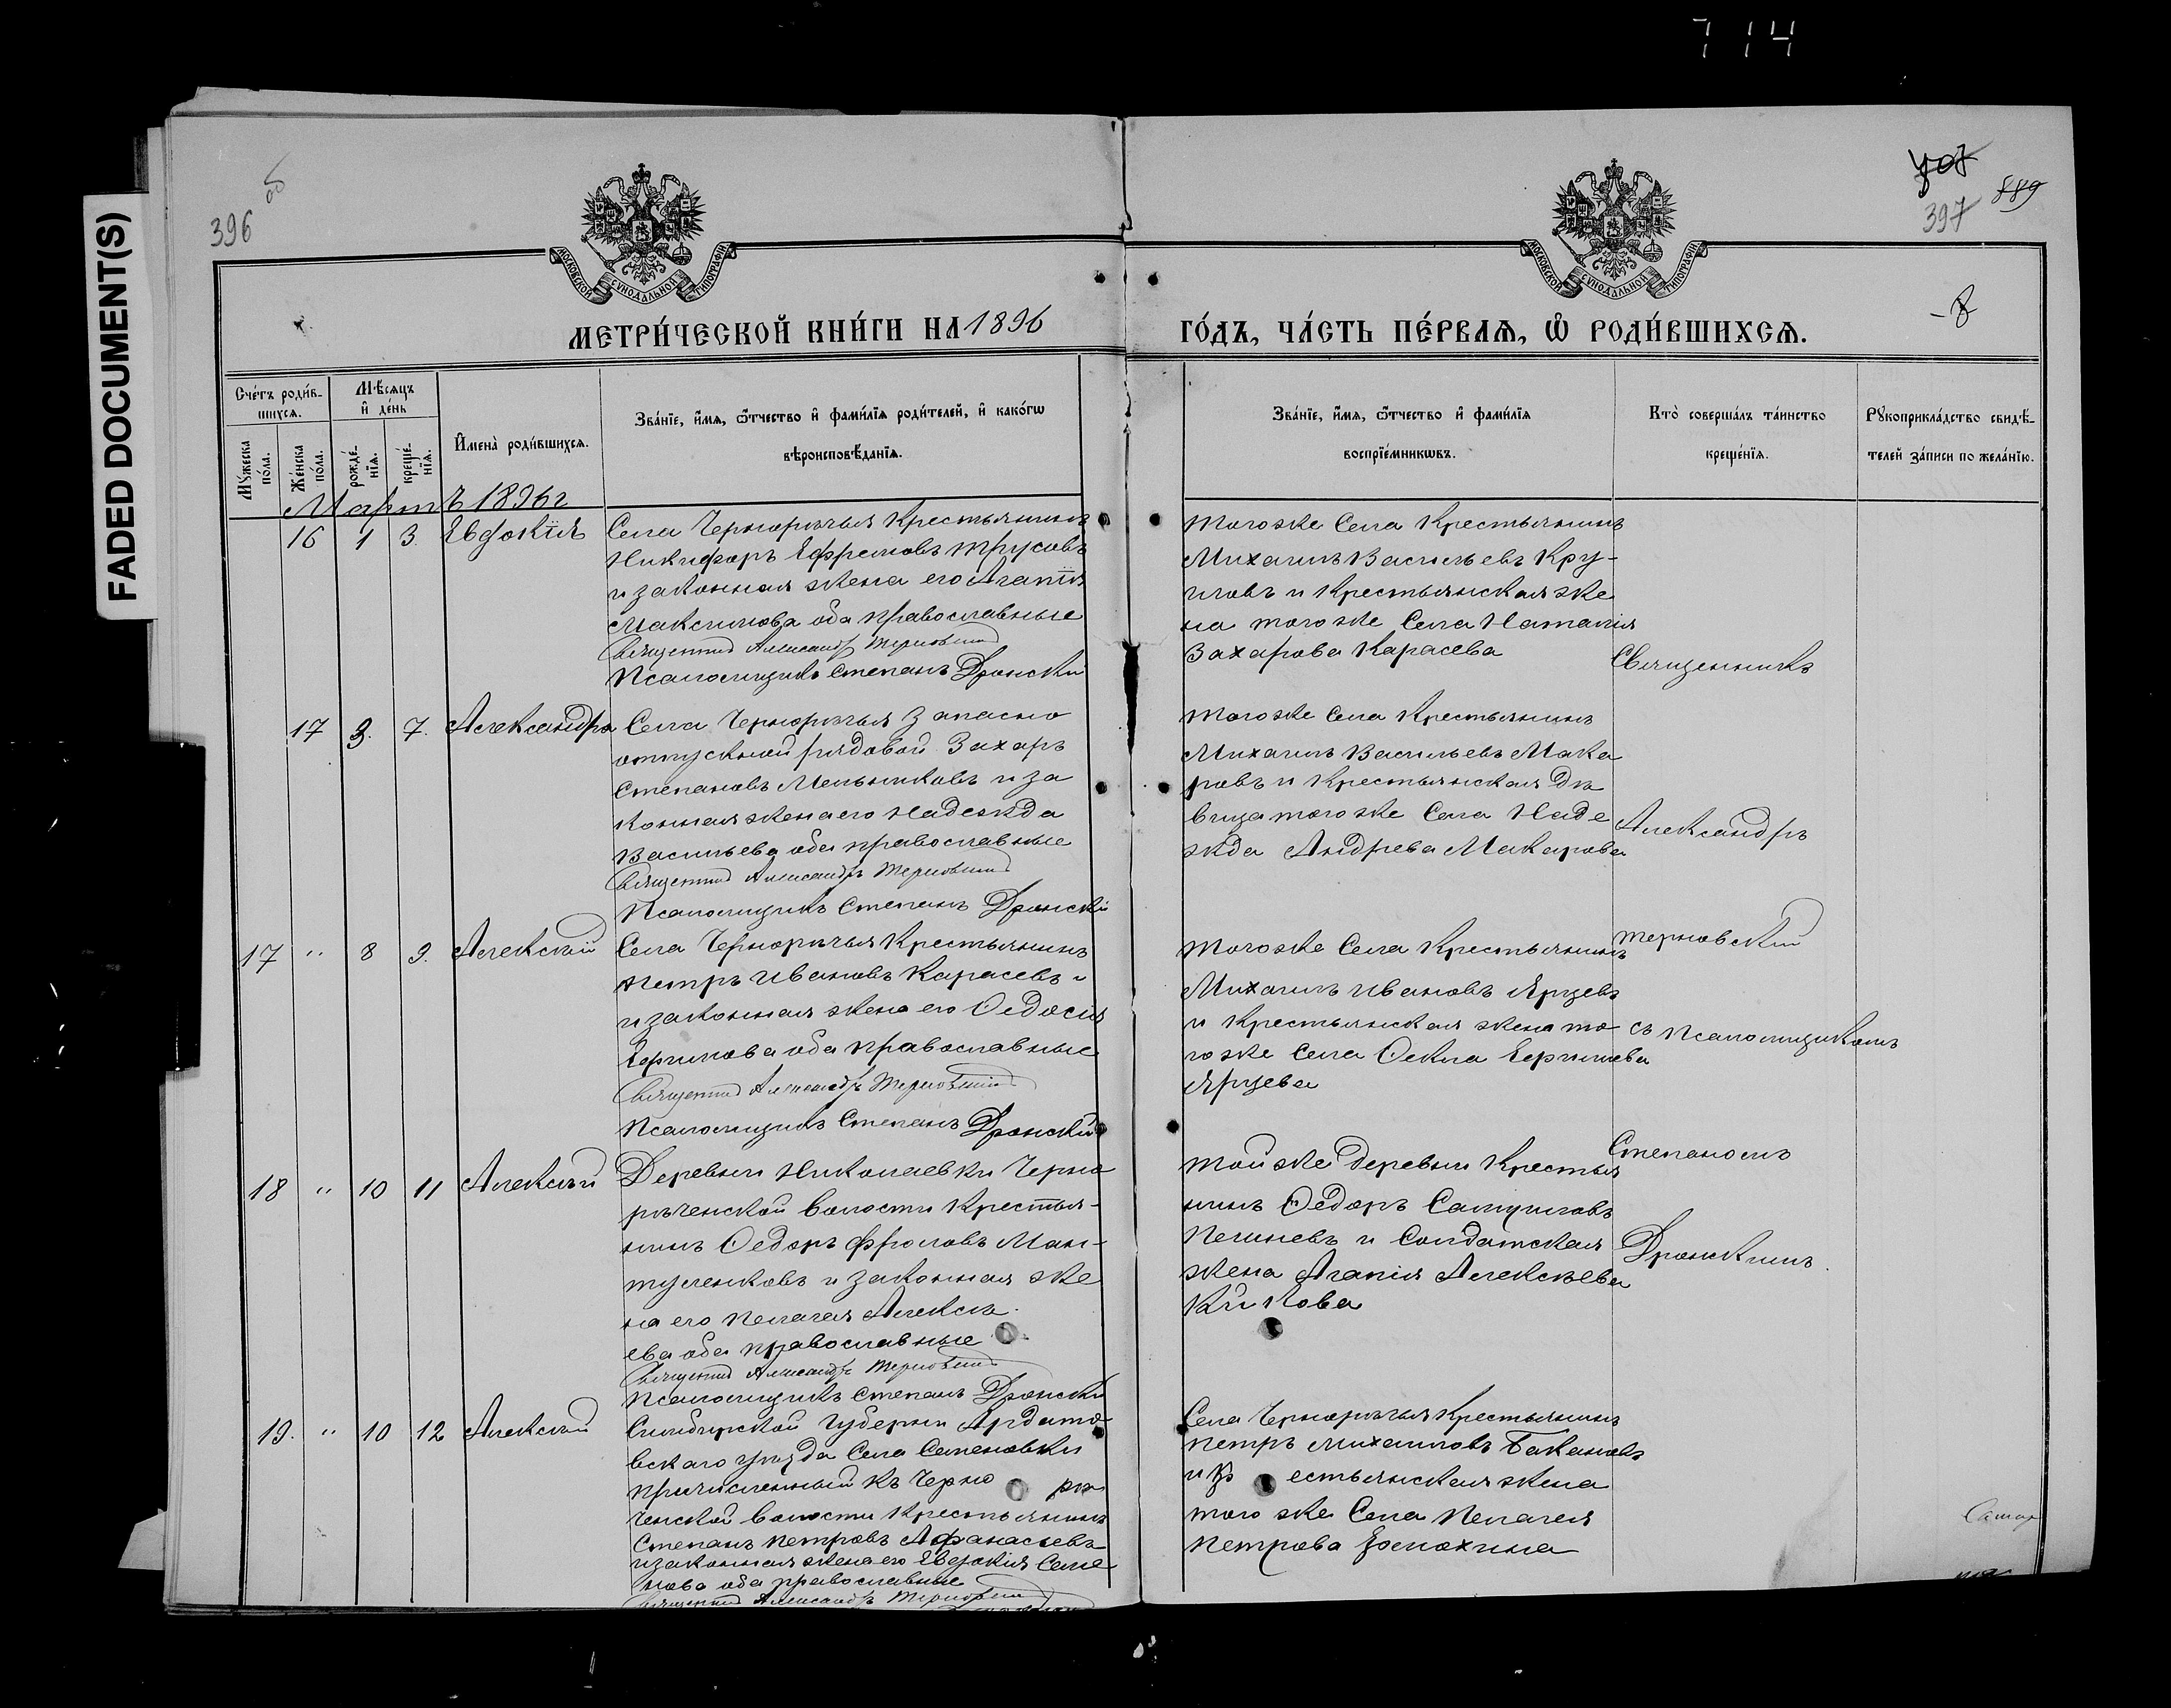 714
FADED DOCUMENT(S)
396
об
707
397
889
8
МОСКОВСКОЙ СУНОДАЛЬНОЙ ТИПОГРАФІИ
МОСКОВСКОЙ СУНОДАЛЬНОЙ ТИПОГРАФІИ
МЕТРИ́ЧЕСКОЙ КНИ́ГИ НА 1896 ГО́ДЪ, ЧА́СТЬ ПЕ́РВАѦ, Ѿ РОДИ́ВШИХСѦ.
Сче́тъ роди́в-
шихсѧ.
Мѣ́сяцъ
и҆ де́нь
Му́жеска по́ла.
Же́нска по́ла.
рожде́-
нїѧ.
креще́-
нїѧ.
И҆мена̀ роди́вшихсѧ.
Зва́нїе, и҆́мѧ, ѻ҆́тчество и҆ фами́лїѧ роди́телей, и҆ како́гѡ
вѣроисповѣ́данїѧ.
Зва́нїе, и҆́мѧ, ѻ҆́тчество и҆ фами́лїѧ
воспрїе́мникѡвъ.
Кто̀ совершалъ та́инство
креще́нїѧ.
Рꙋкоприкла́дство свидѣ́-
телей за́писи по жела́нїю.
Мартъ 1896 г
16 1 3. Евдокія
Села Черноречья Крестьянинъ
Никифоръ Ефремовъ Трусовъ
и законная жена его Агапія
Максимова оба православные
Священник Александр Терновский
Псаломщикъ Степанъ Дронски
тогоже Села Крестьянинъ
Михаилъ Васильевъ Кру-
гловъ и Крестьянская же
на того же Села Наталия
Захарова Карасева
17 3. 7. Александра
Села Черноречья Запасно
отпускной рядовой Захаръ
Степановъ Мельниковъ и за
конная жена его Надежда
Васильева оба православные
Священник Александръ Терновский
Псаломщикъ Степанъ Дронскі
того же Села Крестьянинъ
Михаилъ Васильевъ Мака
ровъ и Крестьянская дѣ
вица того же Села Наде
жда Андреева Макарова
17 " 8 9. Алексѣй
Села Черноречья Крестьянинъ
Петръ Ивановъ Карасевъ и
и законная жена его Ѳедосія
Ефимова оба православные
Священник Александръ Терновский
Псаломщикъ Степанъ Дронский
того же Села Крестьянинъ
Михаилъ Ивановъ Ярцевъ
и Крестьянская жена то
го же Села Ѳекла
Ярцева
18 " 10 11 Алексѣй
Деревни Николаевки Черно
рѣченской волости Крестья-
нинъ Ѳедоръ Фроловъ Ман-
туленковъ и законная же
на его Пелагея Алексѣ
ева оба православные
Священник Александръ Терновский
Псаломщикъ Степанъ Дронски
той же деревни Крестья
нинъ Ѳедоръ Самуиловъ
и Солдатская
жена Агапія Алексѣева
19. " 10 12 Алексѣй
Симбирской губерніи Ардато
вскаго уезда Села Семеновки
причисленный къ Черно рѣ
ченской волости Крестьянинъ
Степанъ Петровъ Афанасьевъ
и законная жена его Евдокія Семе
нова оба православные
Священник Александръ Терновский
Села Черноречья Крестьянинъ
Петръ Михаиловъ Бакановъ
и кр естьянская жена
того же Села Пелагея
Петрова
Священникъ
Александръ
Терновский
съ Псаломщикомъ
Степаномъ
Дронскимъ.